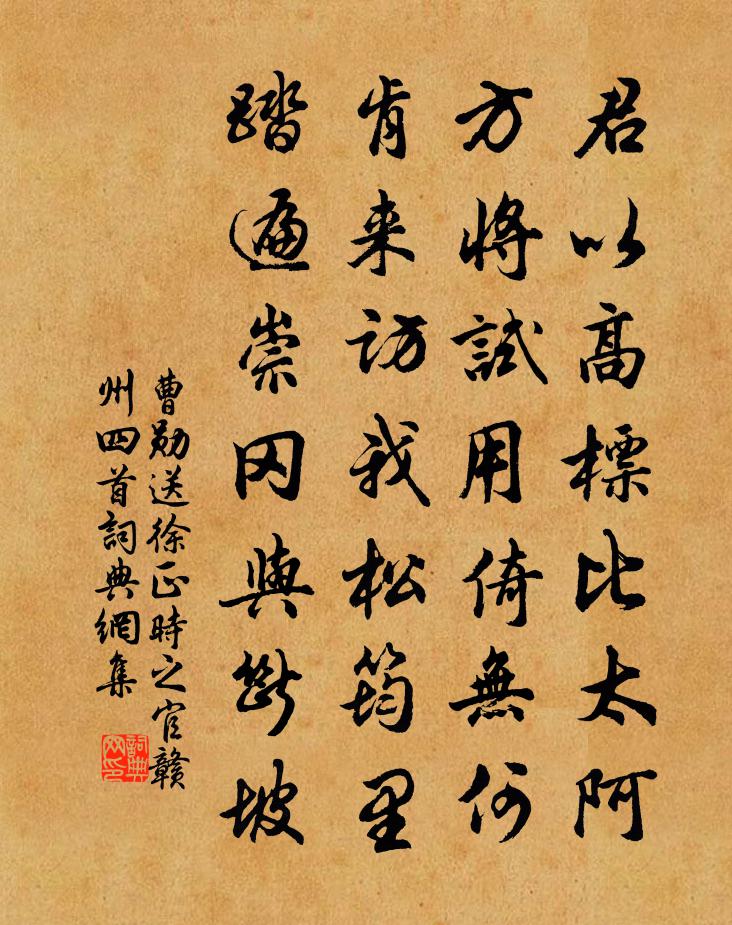 君以高標比太阿
方將試用倚無何
肯来訪我松筠里
踏遍崇冈與斷坡
曹勛送徐正時之官贛
州四首詞典網集
詞典网印